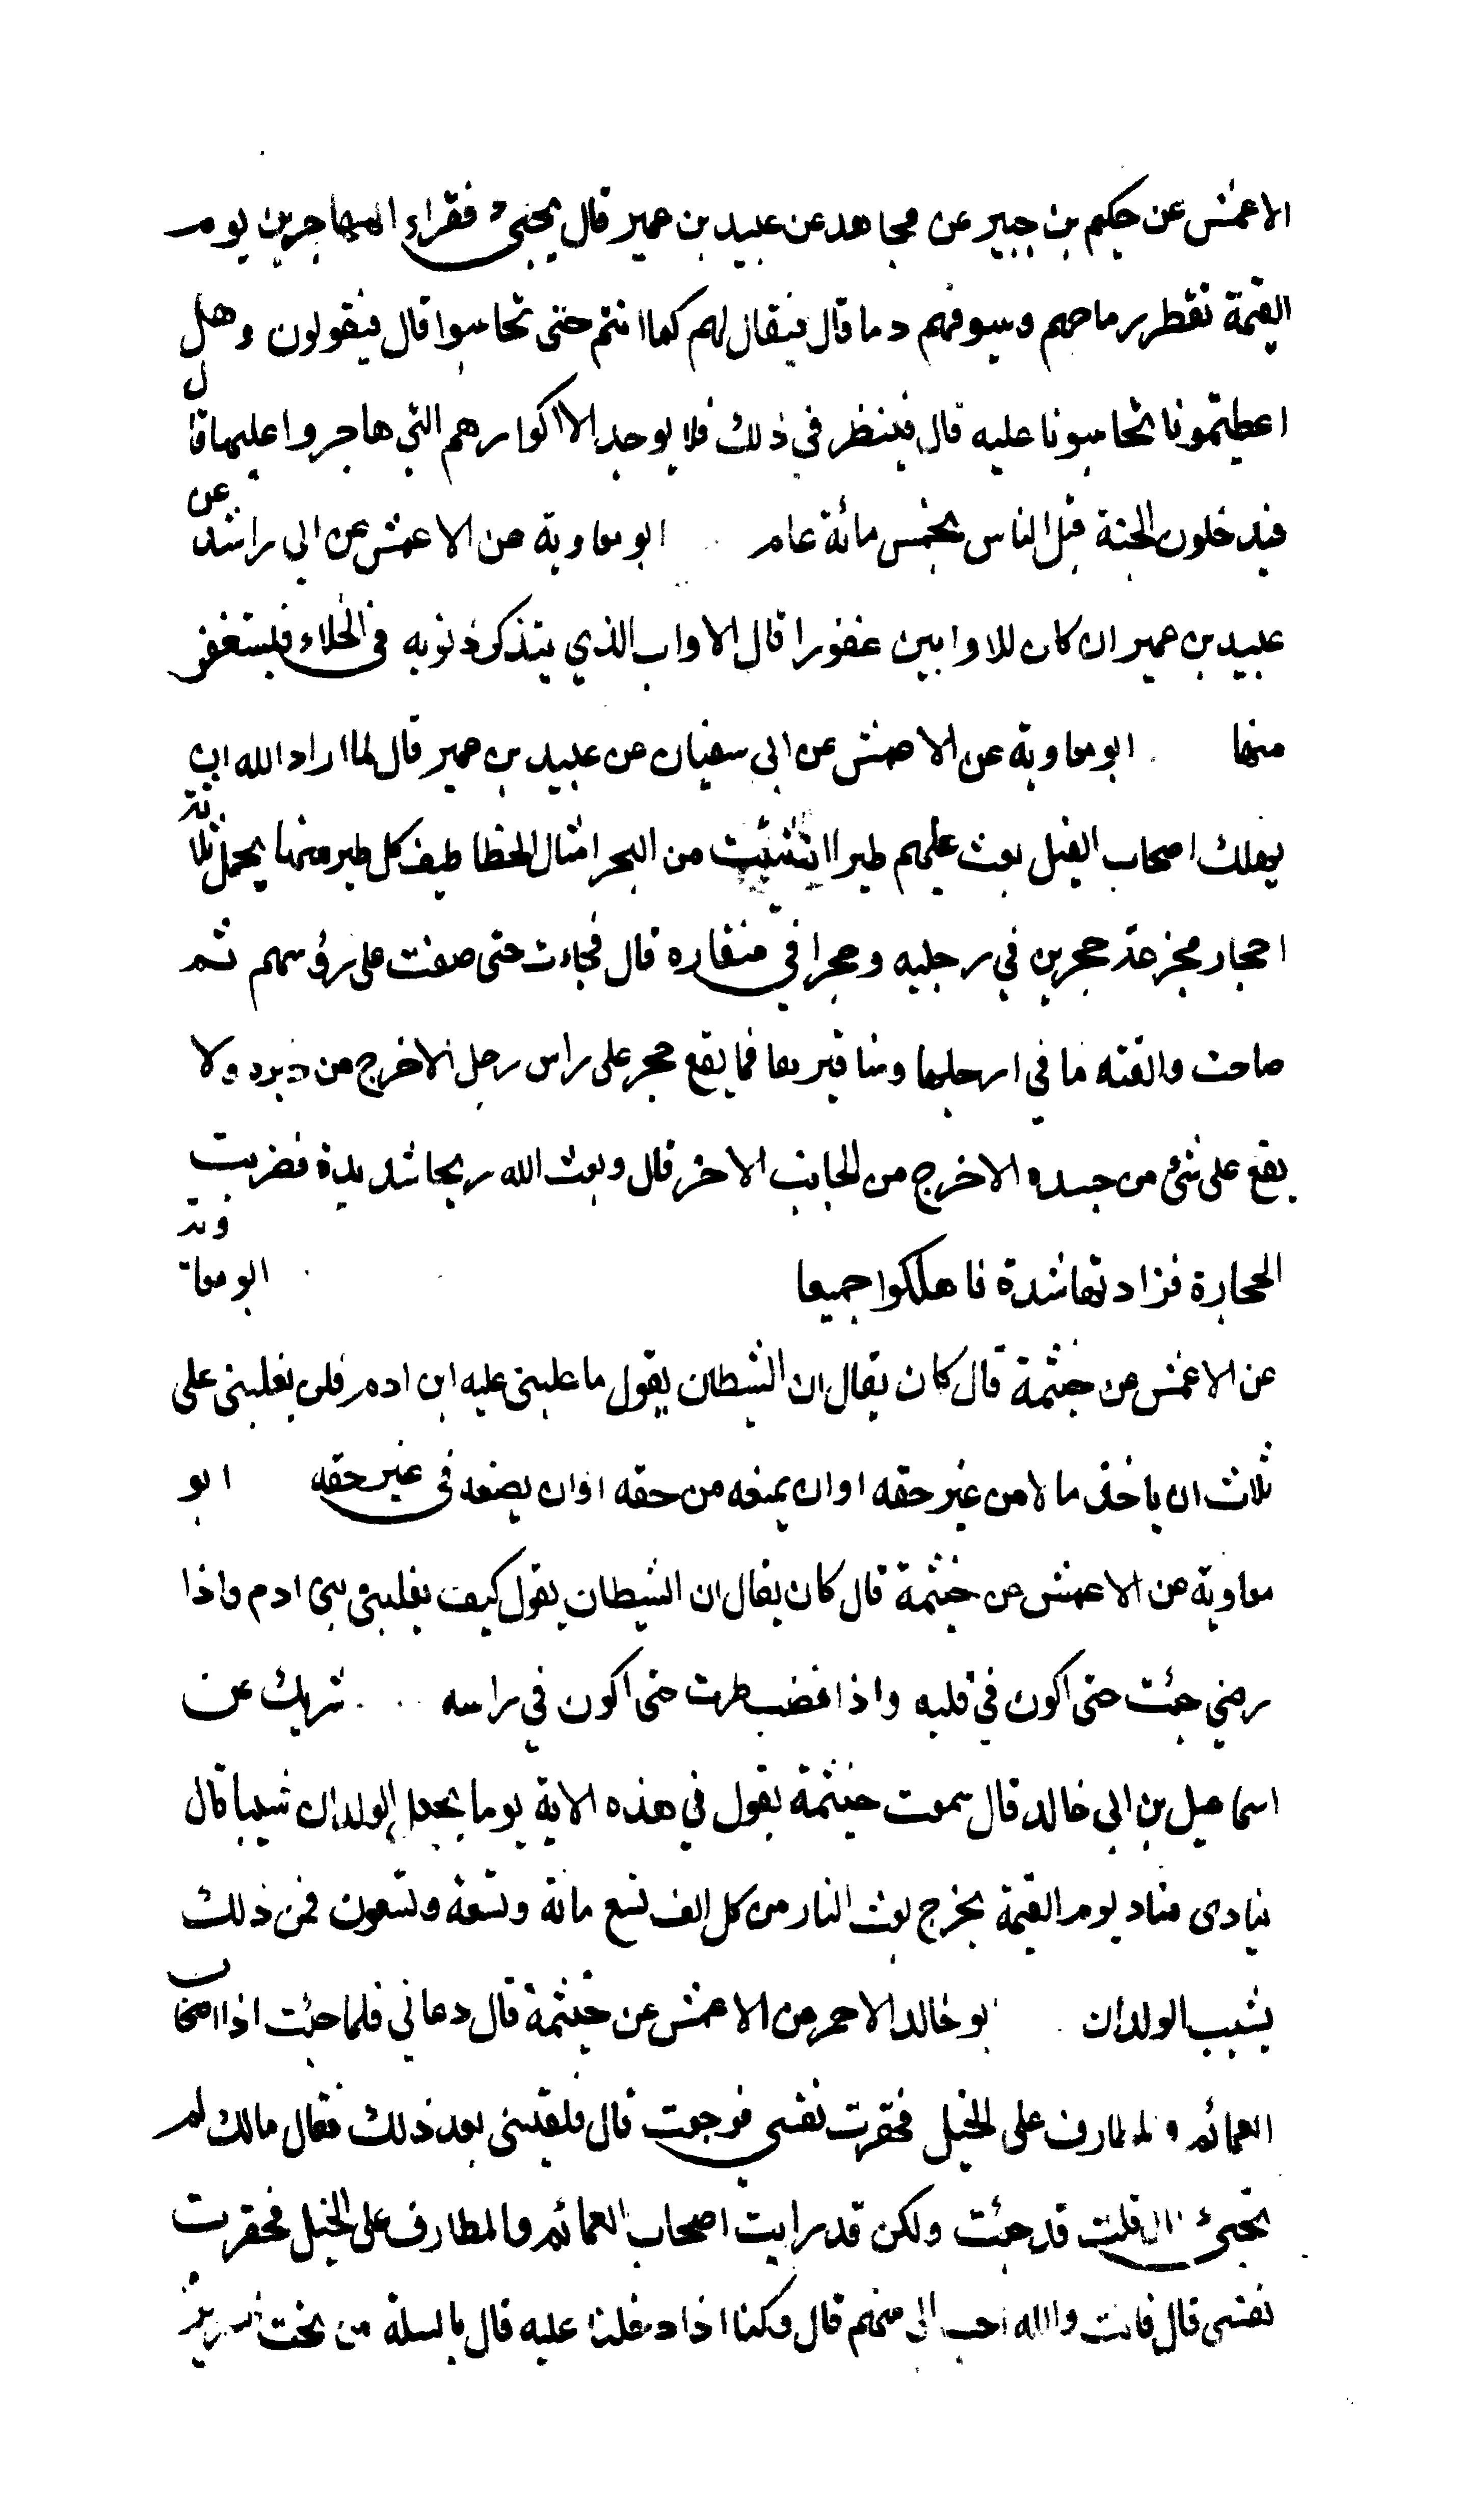 الاعمش عن حكيم بن جبير عن مجاهد عن عبيد بن عمير قال يجيئ فقراء المهاجرين يوم
القيمة تقطر رماحهم وسيوفهم دما قال فيقال لهم كما انتم حتى تحاسبوا قال فيقولون وهل
اعطيتمونا تحاسبونا عليه قال فينظر في ذلك فلا يوجد الا اكوارهم التي هاجروا عليها قال
فيدخلون الجنة قبل الناس بخمس مائة عام ابو معاوية عن الاعمش عن ابي راشد عن
عبيد بن عمير ان كان للاوابين غفورا قال الاواب الذي يتذكر ذنوبه في الخلاء فيستغفر
منها ابو معاوية عن الاعمش عن ابي سفيان عن عبيد بن عمير قال لما اراد الله ان
يهلك اصحاب الفيل بعث عليهم طيرا انشئت من البحر امثال الخطاطيف كل طير منها يحمل ثلاثة
احجار مجزعة حجرين في رجليه وحجرا في منقاره قال فجاءت حتى صفت على رؤسهم ثم
صاحت والقته ما في ارجلها ومناقيرها فما يقع حجر على راس رجل الا خرج من دبره ولا
يقع على شئ من جسده الا خرج من الجانب الاخر قال وبعث الله ريحا شديدة فضربت
الحجارة فزادتها شدة فاهلكوا جميعا ابو معاوية
عن الاعمش عن خيثمة قال كان يقال ان الشيطان يقول ما غلبني عليه ابن ادم فلن يغلبني على
ثلاث ان ياخذ مالا من غير حقه او ان يمنعه من حقه او ان يضعه في غير حقه ابو
معاوية عن الاعمش عن خيثمة قال كان يقال ان الشيطان يقول كيف يغلبني بنى ادم واذا
رضي جئت حتى اكون في قلبه واذا غضب طرت حتى اكون في راسه شريك عن
اسماعيل بن ابي خالد قال سمعت خيثمة يقول في هذه الاية يوما يجعل الولدان شيبا قال
ينادى مناد يوم القيمة يخرج بعث النار من كل الف تسع مائة وتسعة وتسعون فمن ذلك
يشيب الولدان بو خالد الاحمر عن الاعمش عن خيثمة قال دعاني فلما جئت اذا اصحاب
العمائم والمطارف على الخيل فحقرت نفسى فرجعت قال فلقينى بعد ذلك فقال مالك لم
تجيئ قلت قد جئت ولكن قد رايت اصحاب العمائم والمطارف على الخيل فحقرت
نفسى قال فانت والله احب الى منهم قال وكنا اذا دخلنا عليه قال بالسلة من تحت